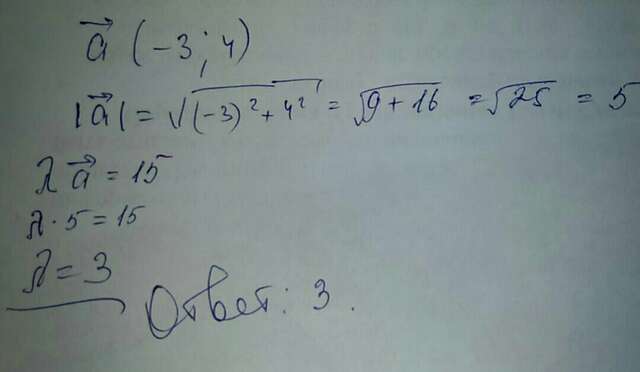 a⃗ (−3; 4)
|a⃗| = √(−3)² + 4² = √9 + 16 = √25 = 5
λ a⃗ = 15
λ · 5 = 15
λ = 3
Ответ: 3.